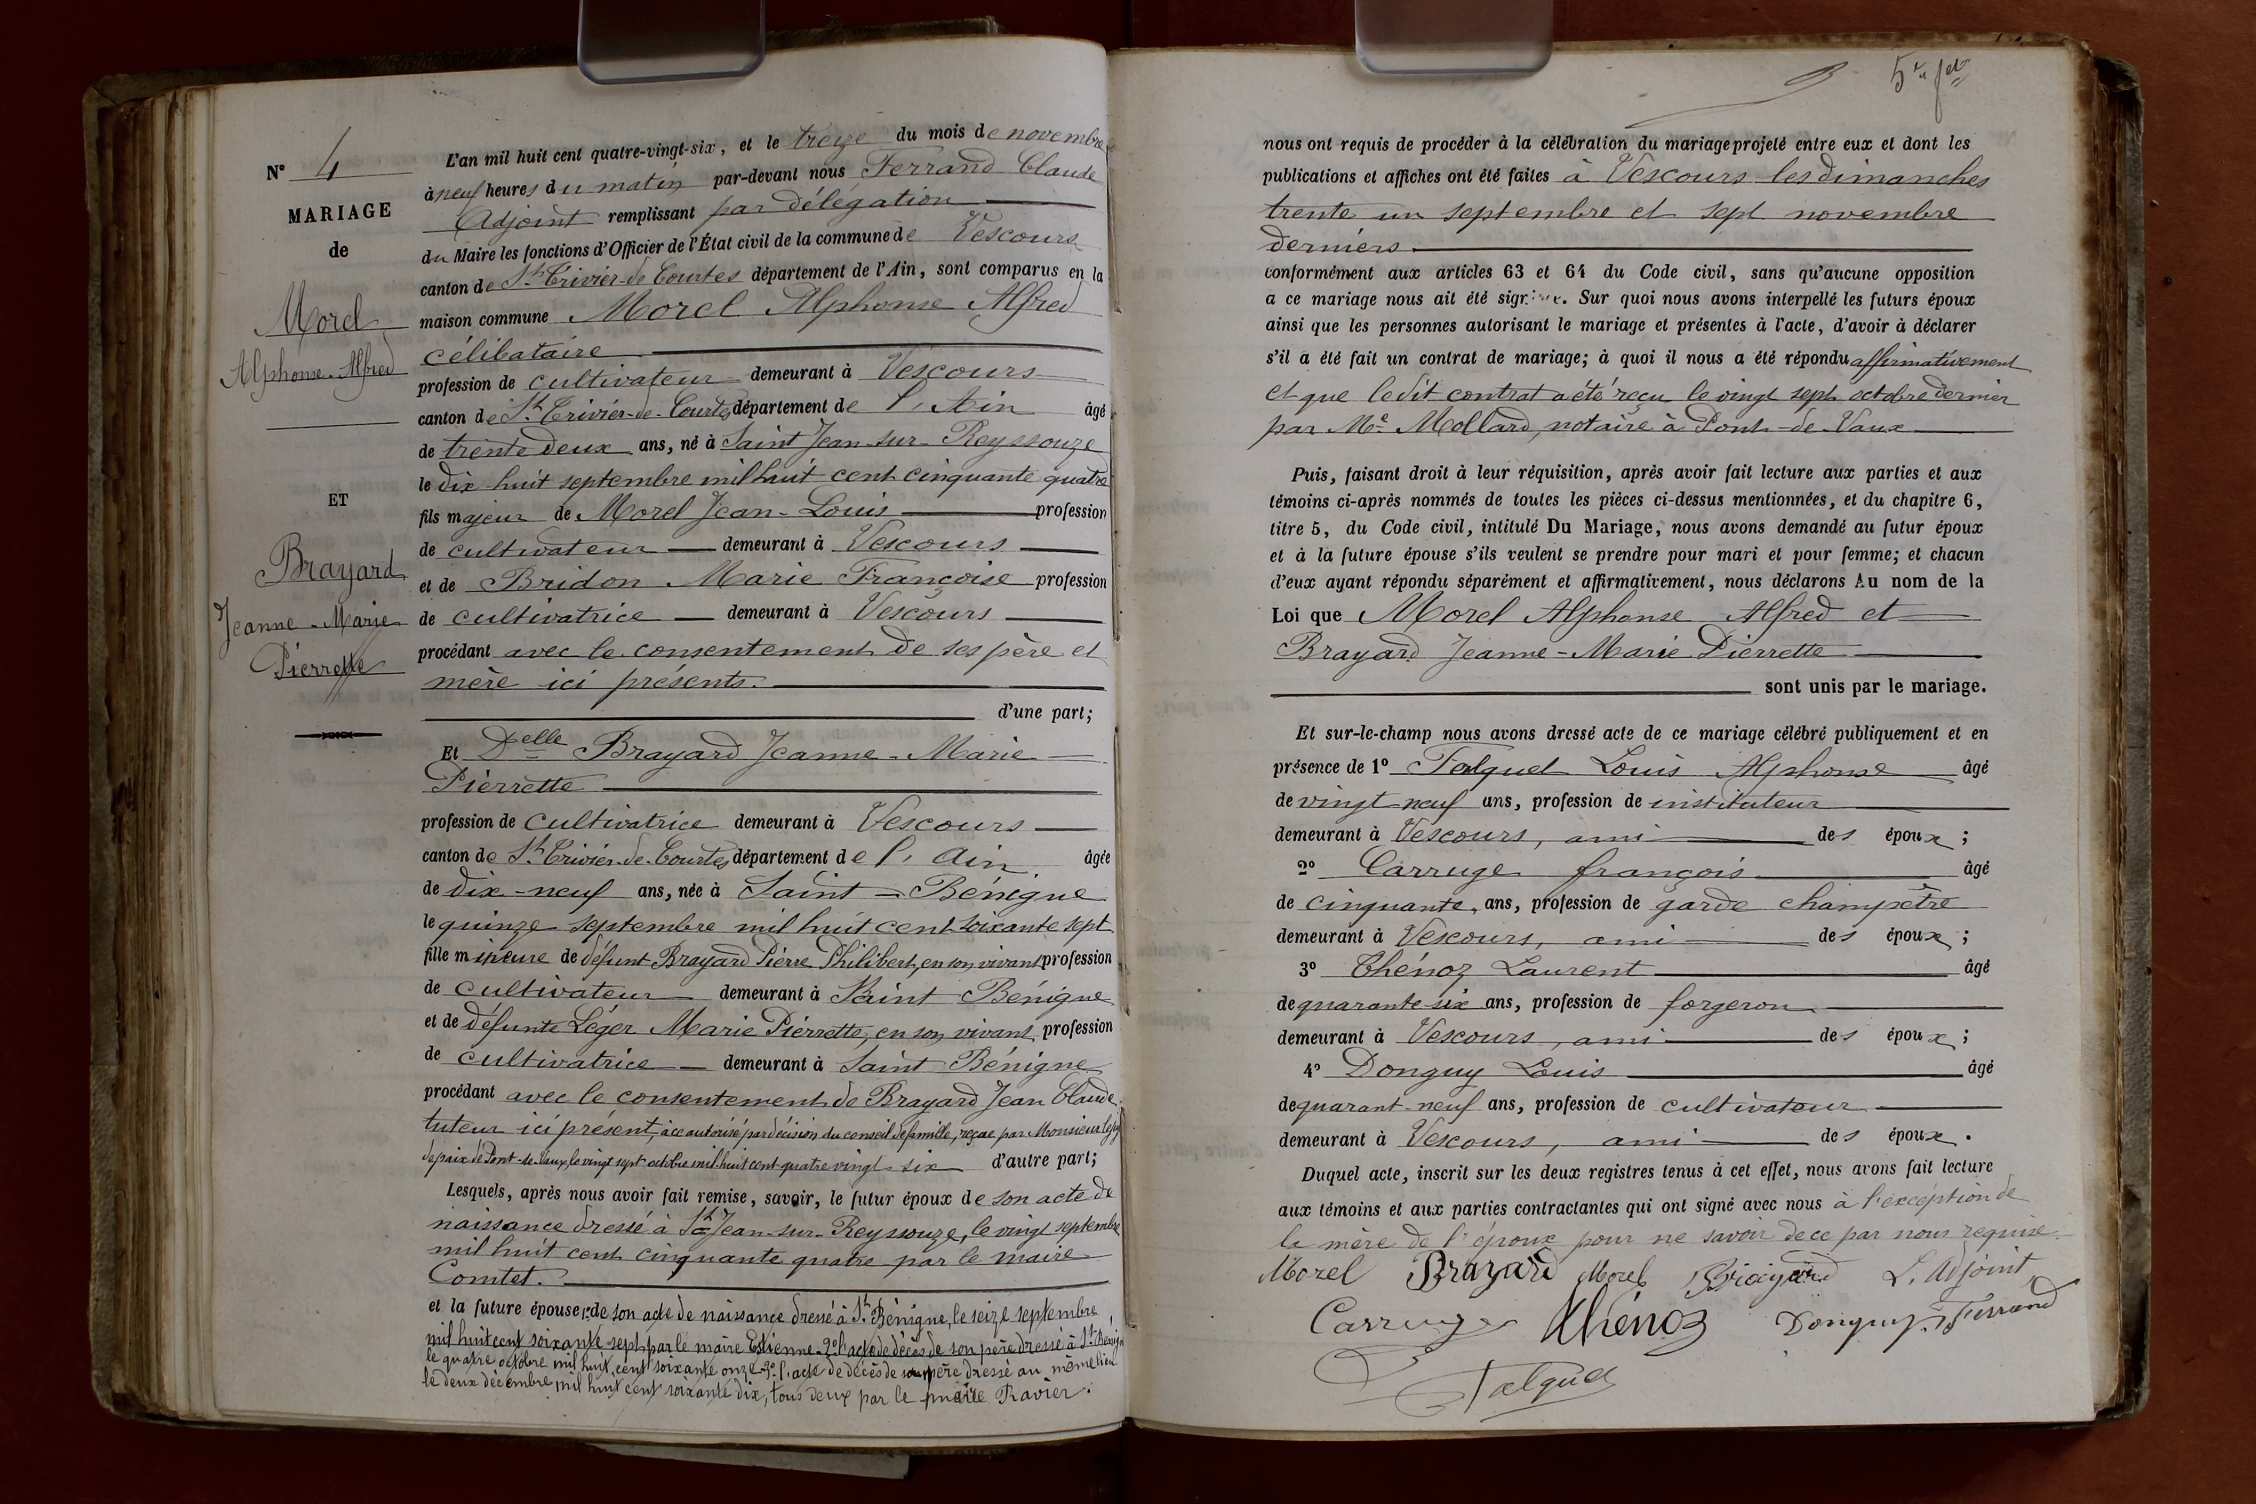 N° 4
MARIAGE
de
Morel
Alphonse-Alfred
ET
Brayard
Jeanne-Marie
Pierrette
L'an mil huit cent quatre-vingt-six, et le treize du mois de novembre
à neuf heures du matin par-devant nous Ferrand Claude
Adjoint remplissant par délégation
du Maire les fonctions d'Officier de l'État civil de la commune de Vescours
canton de St Trivier-de-Courtes département de l'Ain, sont comparus en la
maison commune Morel Alphonse Alfred
célibataire
profession de cultivateur demeurant à Vescours
canton de St Trivier-de-Courtes département de l'Ain âgé
de trente deux ans, né à Saint Jean-sur-Reyssouze
le dix huit septembre mil huit cent cinquante quatre
fils majeur de Morel Jean-Louis profession
de cultivateur demeurant à Vescours
et de Bridon Marie Françoise profession
de cultivatrice demeurant à Vescours
procédant avec le consentement de ses père et
mère ici présents.
d'une part;
Et Delle Brayard Jeanne-Marie
Pierrette
profession de cultivatrice demeurant à Vescours
canton de St Trivier-de-Courtes département de l'Ain âgée
de dix-neuf ans, née à Saint-Bénigne
le quinze septembre mil huit cent soixante sept
fille mineure de défunt Brayard Pierre Philibert, en son vivant profession
de cultivateur demeurant à Saint Bénigne
et de défunte Léger Marie Pierrette, en son vivant profession
de cultivatrice demeurant à Saint Bénigne
procédant avec le consentement de Brayard Jean Claude
tuteur ici présent, à ce autorisé par décision du conseil de famille, reçue par Monsieur le juge
de paix de Pont-de-Vaux, le vingt sept octobre mil huit cent quatre vingt-six d'autre part;
Lesquels, après nous avoir fait remise, savoir, le futur époux de son acte de
naissance dressé à St Jean-sur-Reyssouze, le vingt septembre
mil huit cent cinquante quatre par le maire
Comtet.
et la future épouse 1° de son acte de naissance dressé à St Bénigne, le seize septembre
mil huit cent soixante sept par le maire Estienne 2° l'acte de décès de son père dressé à St Bénigne
le quatre octobre mil huit cent soixante onze 3° l'acte de décès de sa mère dressé au même lieu
le deux décembre mil huit cent soixante dix, tous deux par le maire Ravier.
5e et fet
nous ont requis de procéder à la célébration du mariage projeté entre eux et dont les
publications et affiches ont été faites à Vescours les dimanches
trente un septembre et sept novembre
derniers
conformément aux articles 63 et 64 du Code civil, sans qu'aucune opposition
a ce mariage nous ait été signifiée. Sur quoi nous avons interpellé les futurs époux
ainsi que les personnes autorisant le mariage et présentes à l'acte, d'avoir à déclarer
s'il a été fait un contrat de mariage; à quoi il nous a été répondu affirmativement
et que ledit contrat a été reçu le vingt sept octobre dernier
par Me Mollard, notaire à Pont-de-Vaux
Puis, faisant droit à leur réquisition, après avoir fait lecture aux parties et aux
témoins ci-après nommés de toutes les pièces ci-dessus mentionnées, et du chapitre 6,
titre 5, du Code civil, intitulé Du Mariage, nous avons demandé au futur époux
et à la future épouse s'ils veulent se prendre pour mari et pour femme; et chacun
d'eux ayant répondu séparément et affirmativement, nous déclarons Au nom de la
Loi que Morel Alphonse Alfred et
Brayard Jeanne-Marie Pierrette
sont unis par le mariage.
Et sur-le-champ nous avons dressé acte de ce mariage célébré publiquement et en
présence de 1° Falquet Louis Alphonse âgé
de vingt neuf ans, profession de instituteur
demeurant à Vescours, ami des époux;
2° Carruge françois âgé
de cinquante ans, profession de garde champêtre
demeurant à Vescours, ami des époux;
3° Thénoz Laurent âgé
de quarante-six ans, profession de forgeron
demeurant à Vescours, ami des époux;
4° Donguy Louis âgé
de quarant-neuf ans, profession de cultivateur
demeurant à Vescours, ami des époux.
Duquel acte, inscrit sur les deux registres tenus à cet effet, nous avons fait lecture
aux témoins et aux parties contractantes qui ont signé avec nous à l'exception de
la mère de l'époux pour ne savoir de ce par nous requise.
Morel Brayard Morel Brayard L'Adjoint
Carruge Thénoz Donguy Ferrand
Falquet